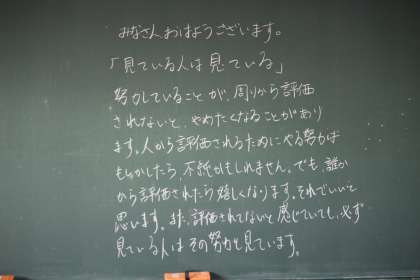 みなさんおはようございます。
「見ている人は見ている」
努力していることが、周りから評価
されないと、やめたくなることがあり
ます。人から評価されるためにやる努力は
もしかしたら、不純かもしれません。でも、誰か
から評価されたら嬉しくなります。それでいいと
思います。また、評価されてないと感じていても、必ず
見ている人はその努力を見ています。